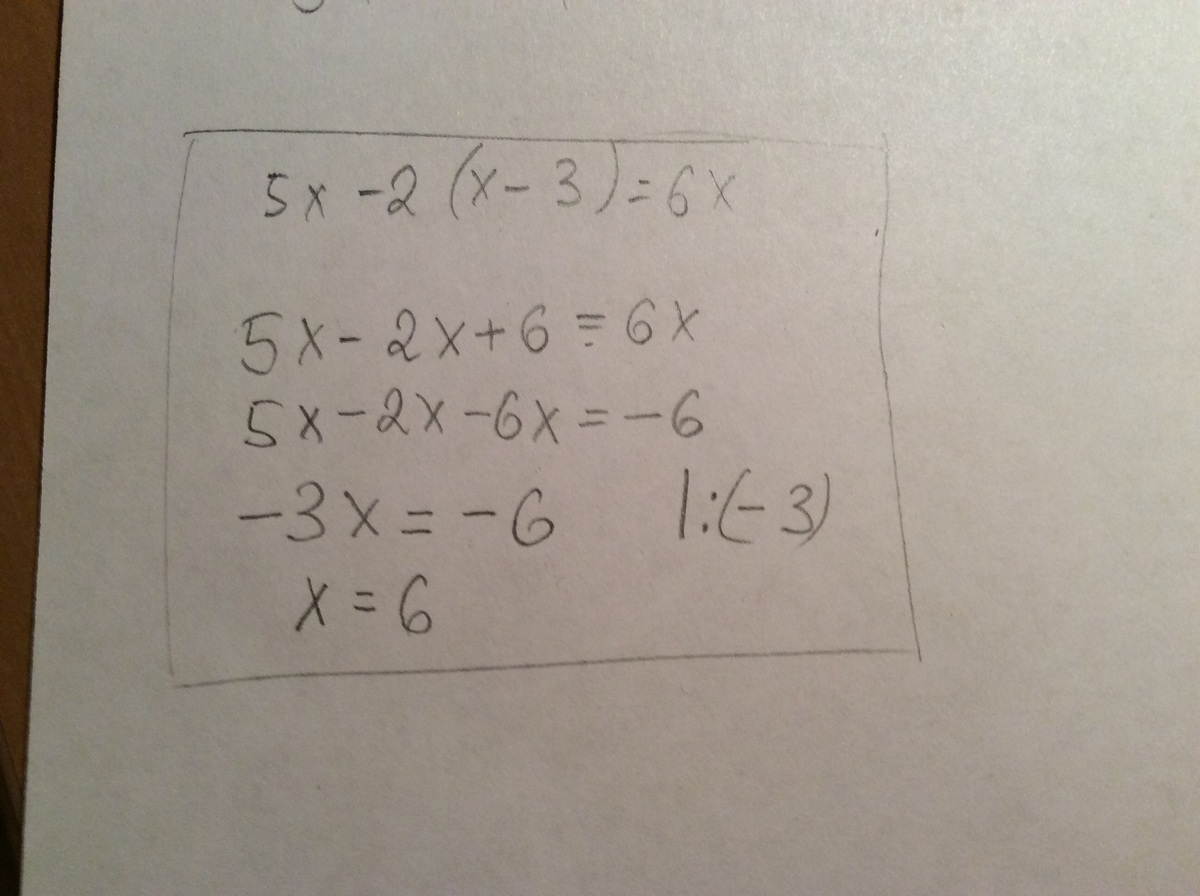 5x - 2 (x - 3) = 6x
5x - 2x + 6 = 6x
5x - 2x - 6x = -6
-3x = -6 |:(-3)
x = 6